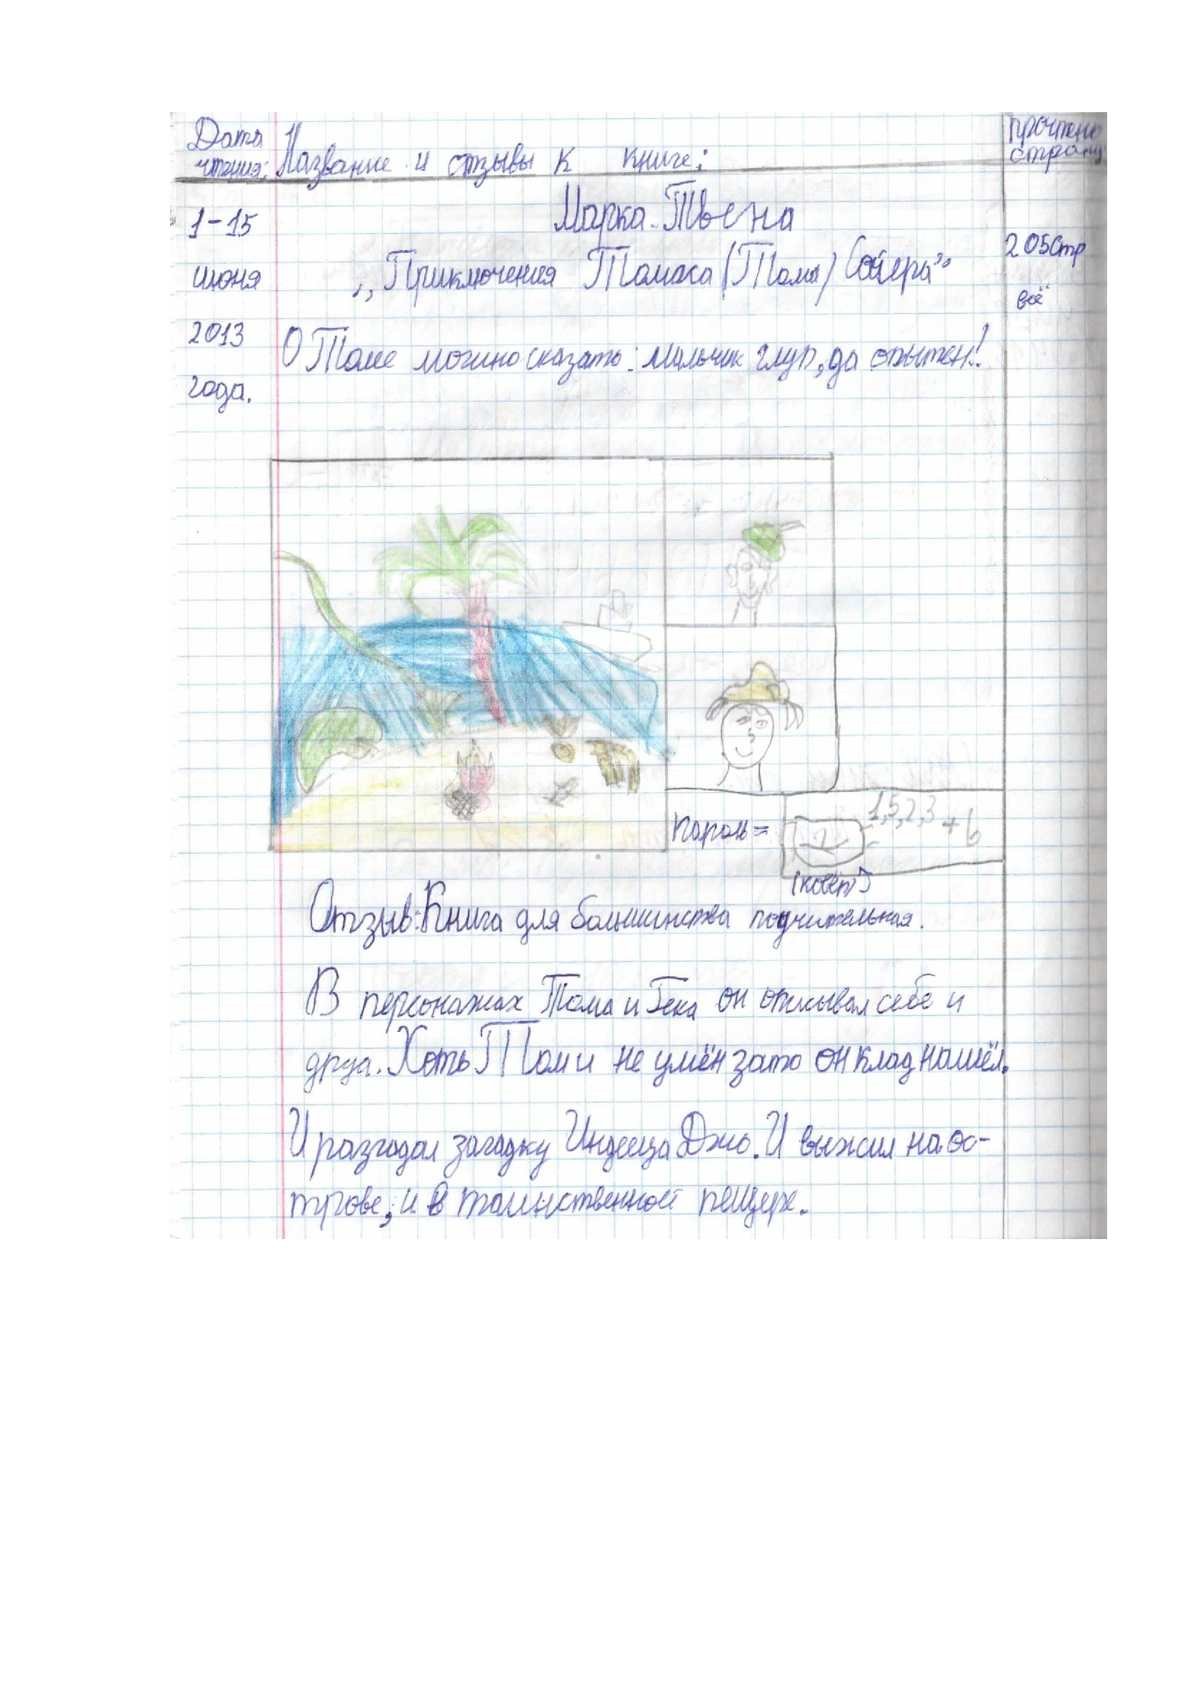 Дата
чтения:
Название и отзывы к книге:
Прочтено
страниц
1-15
июня
2013
года.
Марка Твена
„Приключения Томаса (Тома) Сойера"
205стр
всё
О Томе можно сказать: мальчик глуп, да опытен!
пароль =
1,5,2,3 + 6
(ковёр)
Отзыв: Книга для большинства поучительная.
В персонажах Тома и Гека он описывал себе и
друга. Хоть Том и не умён зато он клад нашёл.
И разгадал загадку Индейца Джо. И выжил на ос-
трове, и в таинственной пещере.